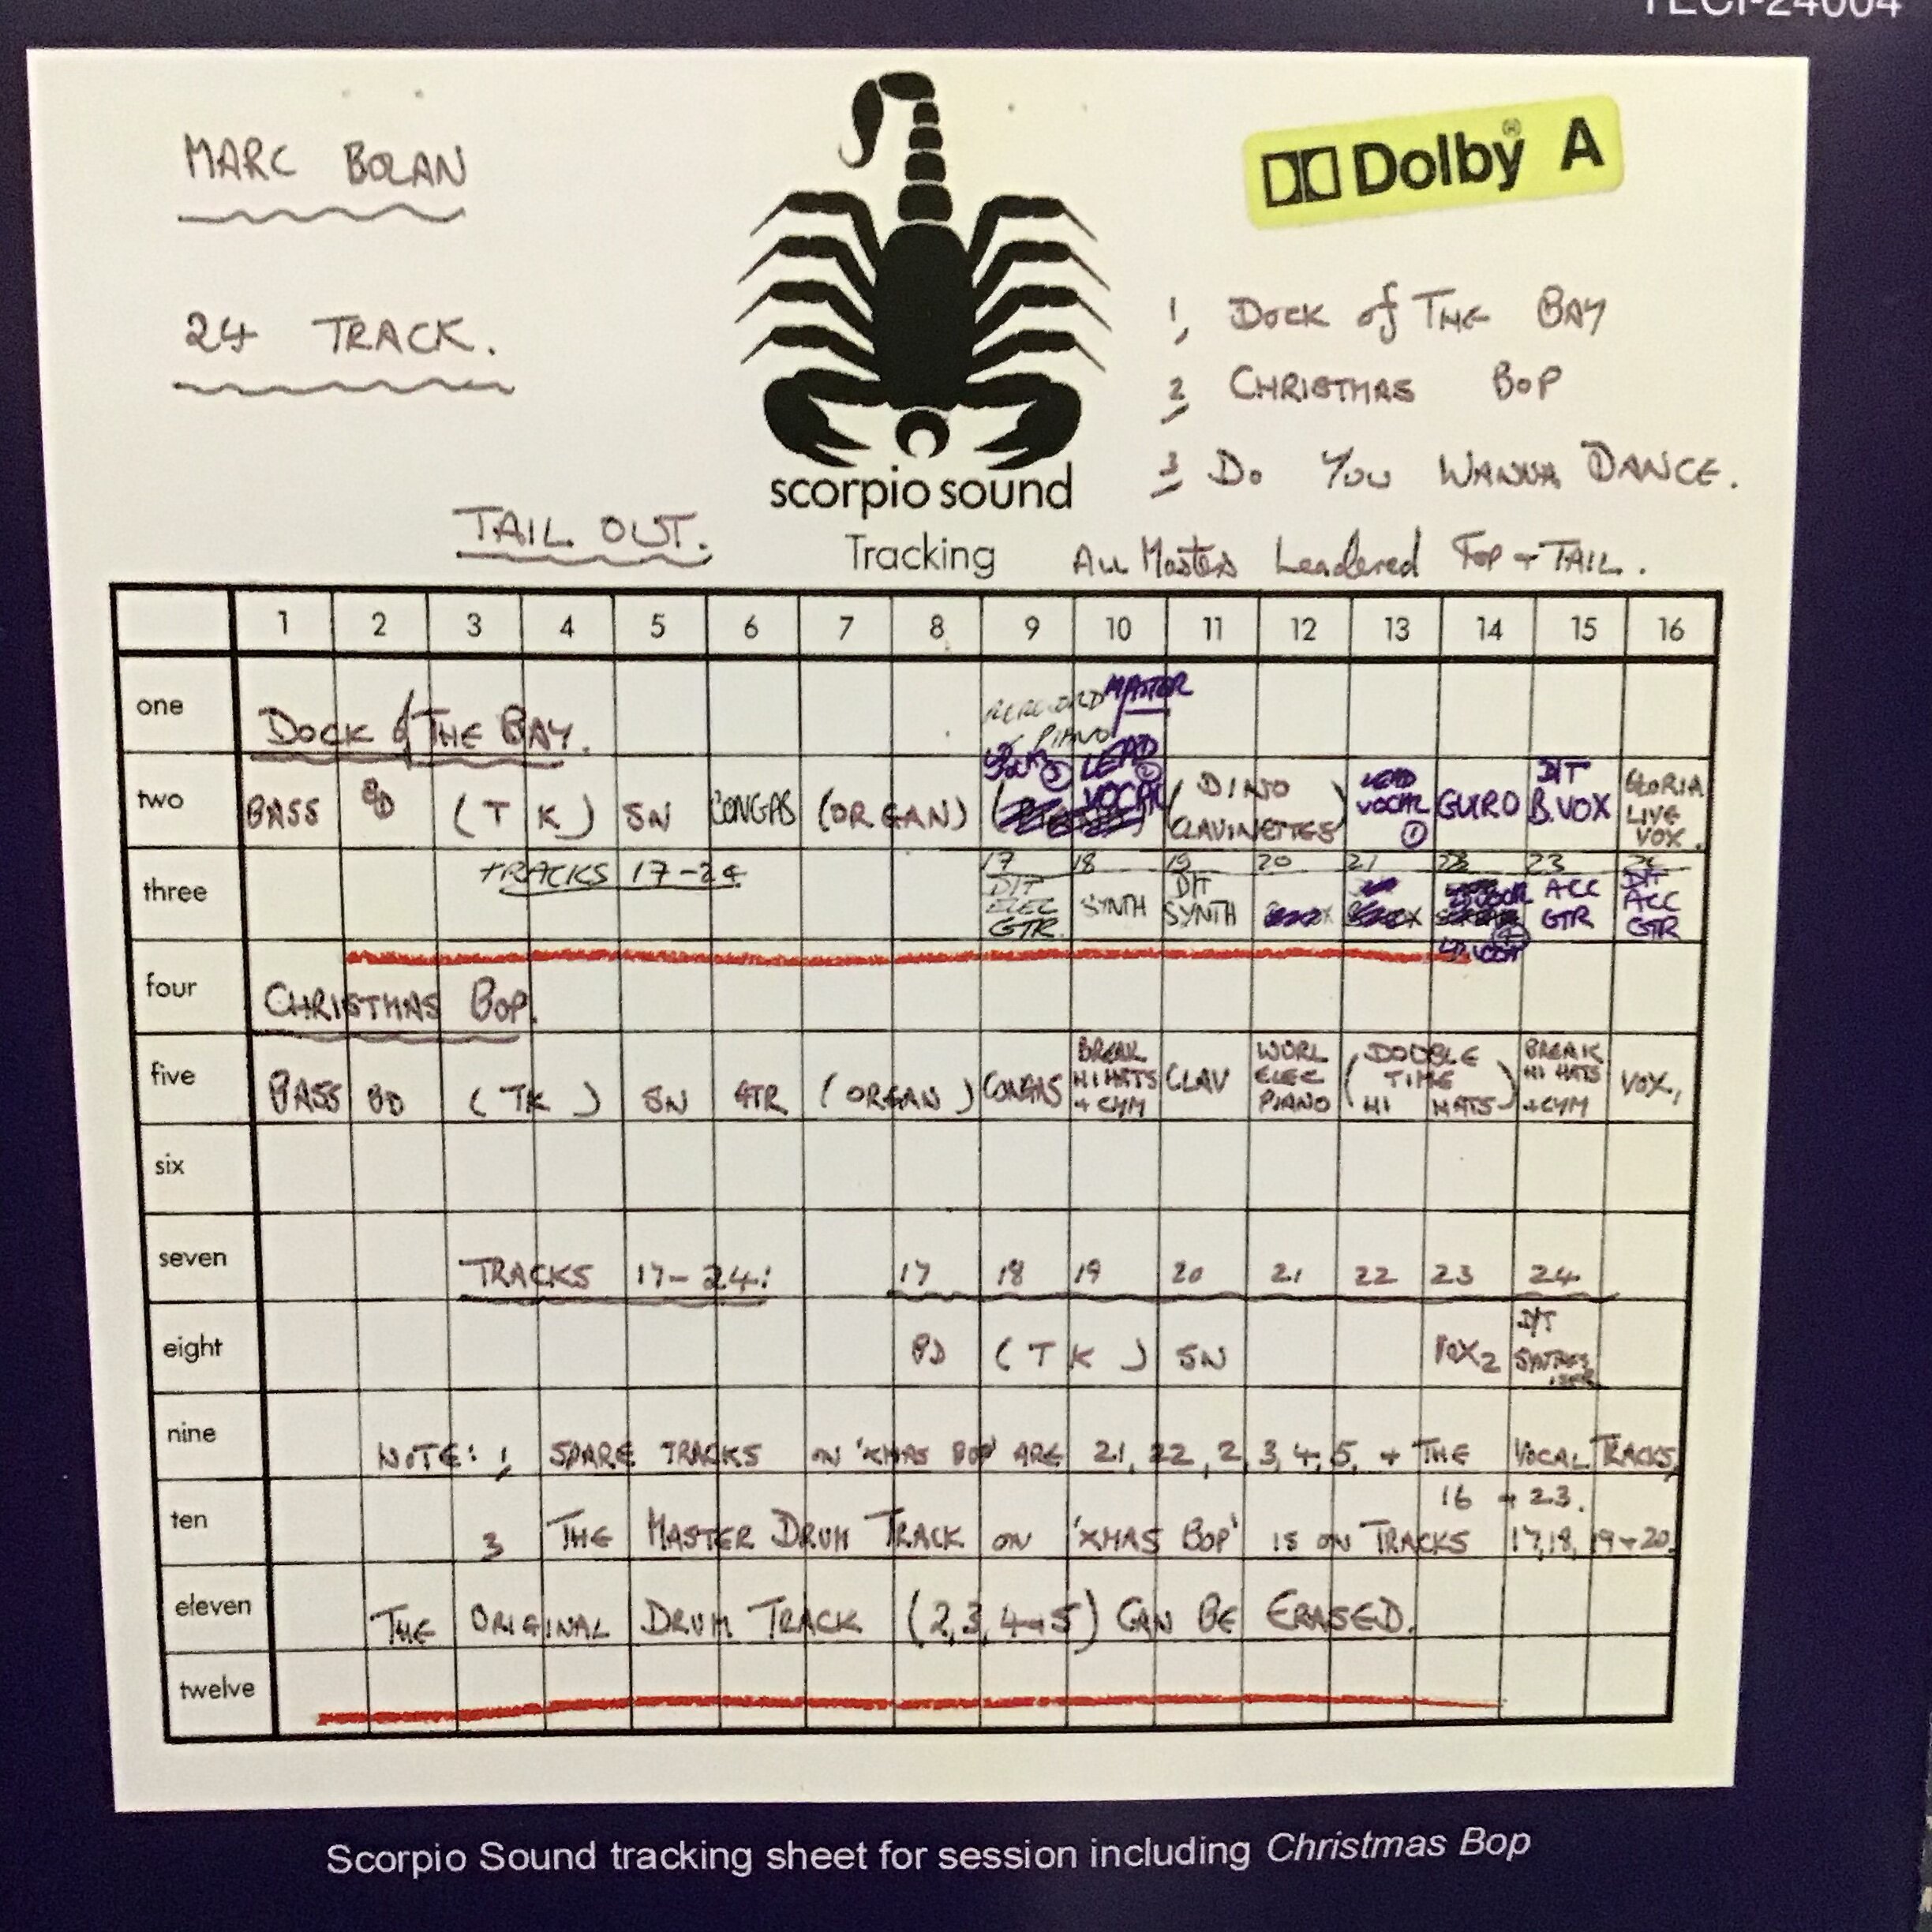 TECI-24004
MARC BOLAN
Dolby® A
24 TRACK.
1, DOCK of THE BAY
2 CHRISTMAS BOP
3 DO YOU WANNA DANCE.
scorpio sound
TAIL OUT.
Tracking
ALL Masters Leadered TOP + TAIL.
1 2 3 4 5 6 7 8 9 10 11 12 13 14 15 16
one
DOCK of THE BAY.
PIANO
MASTER
two
BASS BD (TK) SN CONGAS (ORGAN)
LEAD ② VOCAL
(DINO CLAVINETTES)
LEAD VOCAL ①
GUIRO
D/T B.VOX
GLORIA LIVE VOX.
three
TRACKS 17-24
17 18 19 20 21 22 23 24
D/T ELEC GTR.
SYNTH
D/T SYNTH
ACC GTR
D/T ACC GTR
four
CHRISTMAS BOP.
five
BASS BD (TK) SN GTR (ORGAN) CONGAS
BREAK HI HATS + CYM
CLAV
WURL ELEC PIANO
(DOUBLE TIME HI HATS)
BREAK HI HATS + CYM
VOX,
six
seven
TRACKS 17-24:
17 18 19 20 21 22 23 24
eight
BD (TK) SN VOX2
D/T
nine
NOTE: 1, SPARE TRACKS ON 'XMAS BOP' ARE 21, 22, 2, 3, 4, 5, + THE VOCAL TRACKS,
16 + 23.
ten
3 THE MASTER DRUM TRACK ON 'XMAS BOP' IS ON TRACKS 17, 18, 19 + 20.
eleven
THE ORIGINAL DRUM TRACK (2, 3, 4 + 5) CAN BE ERASED.
twelve
Scorpio Sound tracking sheet for session including Christmas Bop